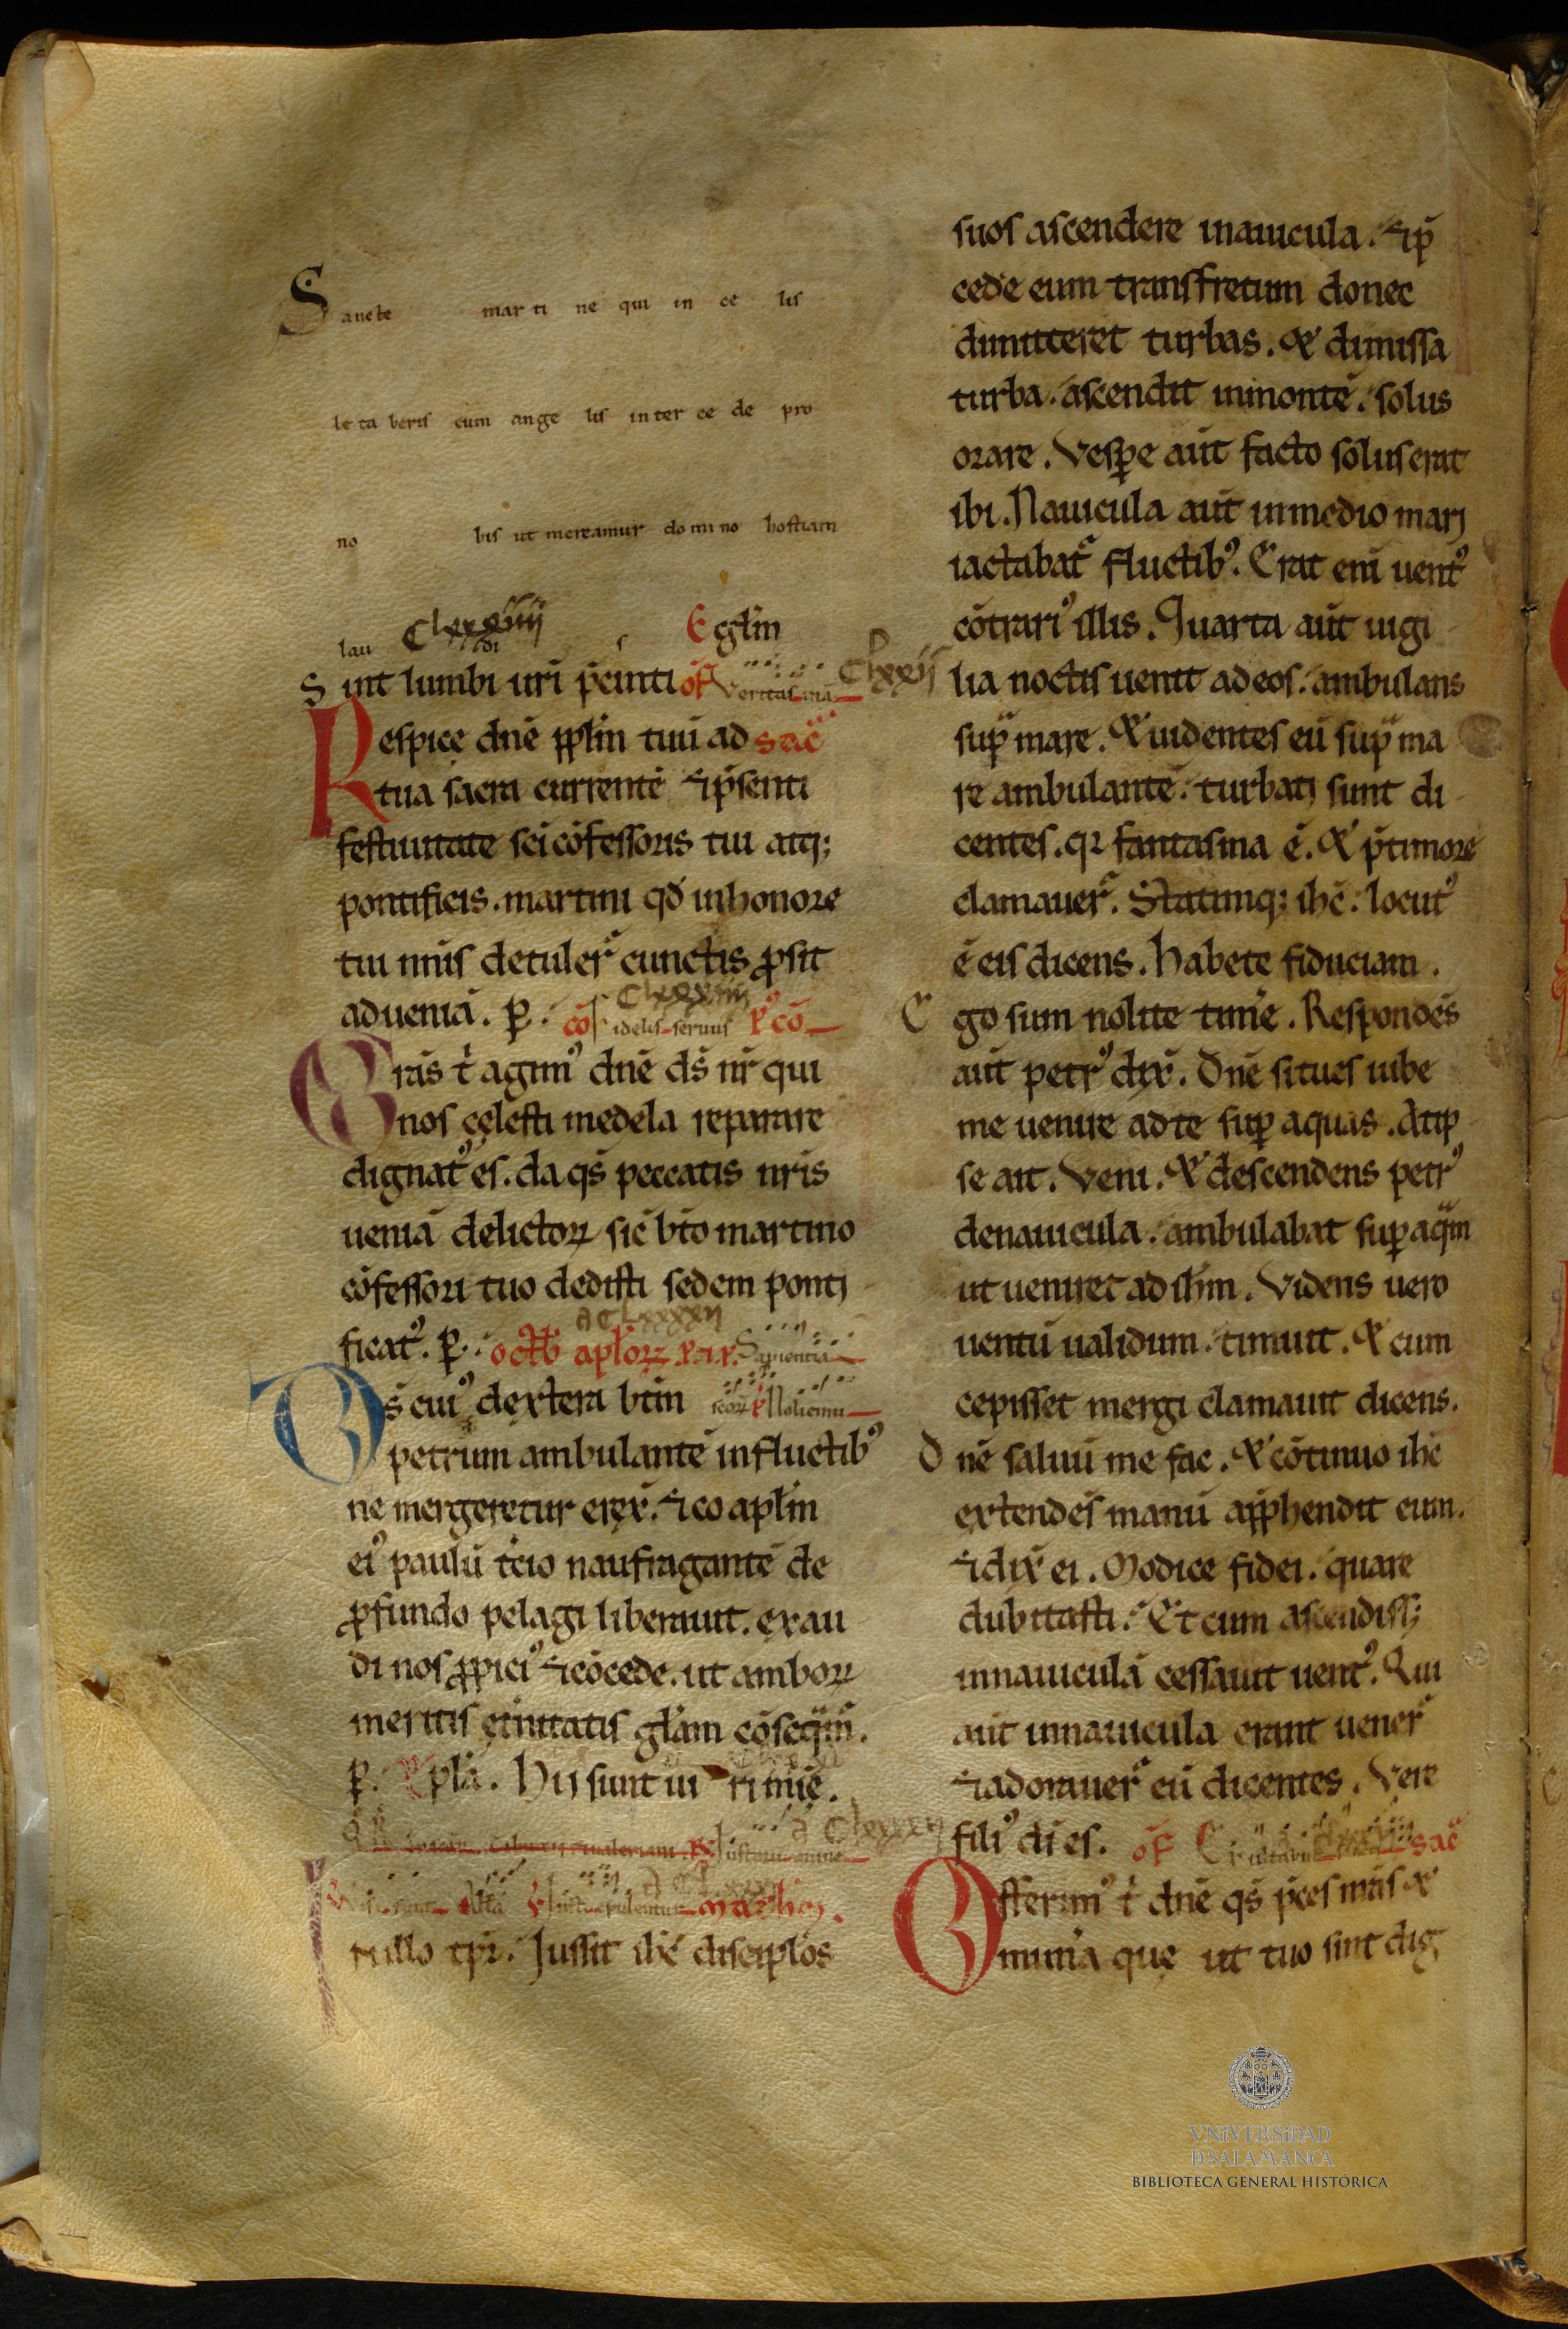 Sancte mar ti ne qui in ce lis
le ta beris cum ange lis in ter ce de pro
no bis ut mereamur do mi no hostiam
lau di s Eglm̄
Clxxxiiii
Sint lumbi ur̄i p̄cinti of̄ Veritas m̄a Clxxii
Respice dn̄e pp̄lm tuū ad sac̄
tua sacra currentē ⁊ ip̄senti
festiuitate sc̄i cōfessoris tui atq;
pontificis. martini qd̄ in honore
tui nn̄is detuler̄ cunctis ꝓsit
ad ueniā. p̄. cō Fidelis seruus p̄ cō
Gras t̄ agimꝰ dn̄e ds̄ nr̄ qui
nos cęlesti medela reparare
dignatꝰ es. da qs̄ peccatis nr̄is
ueniā delictoꝝ sic̄ bt̄o martino
cōfessori tuo dedisti sedem ponti
ficatꝰ. p̄. oct̄b ap̄loꝝ Sapientiā
Ds̄ cuiꝰ dextera bt̄m scōꝝ Noli emu
petrum ambulantē in fluctibꝰ
ne mergeretur erex̄. ⁊ co apl̄m
eiꝰ paulū t̄cio naufragantē de
ꝓfundo pelagi liberauit. exau
di nos ꝓpiciꝰ ⁊ cōcede. ut amboꝝ
meritis et̄nitatis gl̄am cōseqm̄.
p̄. Epl̄a. Hii sunt ui ri mīe.
math̄m.
In illo tp̄r. Jussit ih̄c discipl̄os
suos ascendere in nauicula. ⁊ ip̄
cede eum transfretum donec
dimitteret turbas. & dimissa
turba. ascendit in montē. solus
orare. Vesꝑe aūt facto solus erat
ibi. Nauicula aūt in medio mari
iactabat̄ fluctibꝰ. Erat eni uentꝰ
cōtrariꝰ illis. Quarta aūt uigi
lia noctis uenit ad eos. ambulans
sup̄ mare. & uidentes eū sup̄ ma
re ambulantē. turbati sunt di
centes. qr fantasma ē. & p̄ timore
clamauer̄. Statimq; ih̄c. locutꝰ
ē eis dicens. Habete fiduciam.
Ego sum nolite tim̄e. Respondēs
aūt petrꝰ dix̄. Dn̄e si tu es iube
me uenire ad te sup̄ aquas. At ip
se ait. Veni. & descendens petrꝰ
de nauicula. ambulabat sup̄ aqm̄
ut ueniret ad ih̄m. Videns uero
uentū ualidum. timuit. & cum
cepisset mergi clamauit dicens.
Dn̄e saluū me fac. & cōtinuo ih̄c
extendēs manū app̄hendit eum.
⁊ dix̄ ei. Modice fidei. quare
dubitasti. Et cum ascendiss;
in nauiculā cessauit uentꝰ. Qui
aūt in nauicula erant uener̄
⁊ adorauer̄ eū dicentes. Vere
filiꝰ dī es. of̄ sac̄
Offerimꝰ t̄ dn̄e qs̄ p̄ces mr̄is &
munera que ut tuo sint dig
VNIVERSIDAD
D SALAMANCA
BIBLIOTECA GENERAL HISTÓRICA